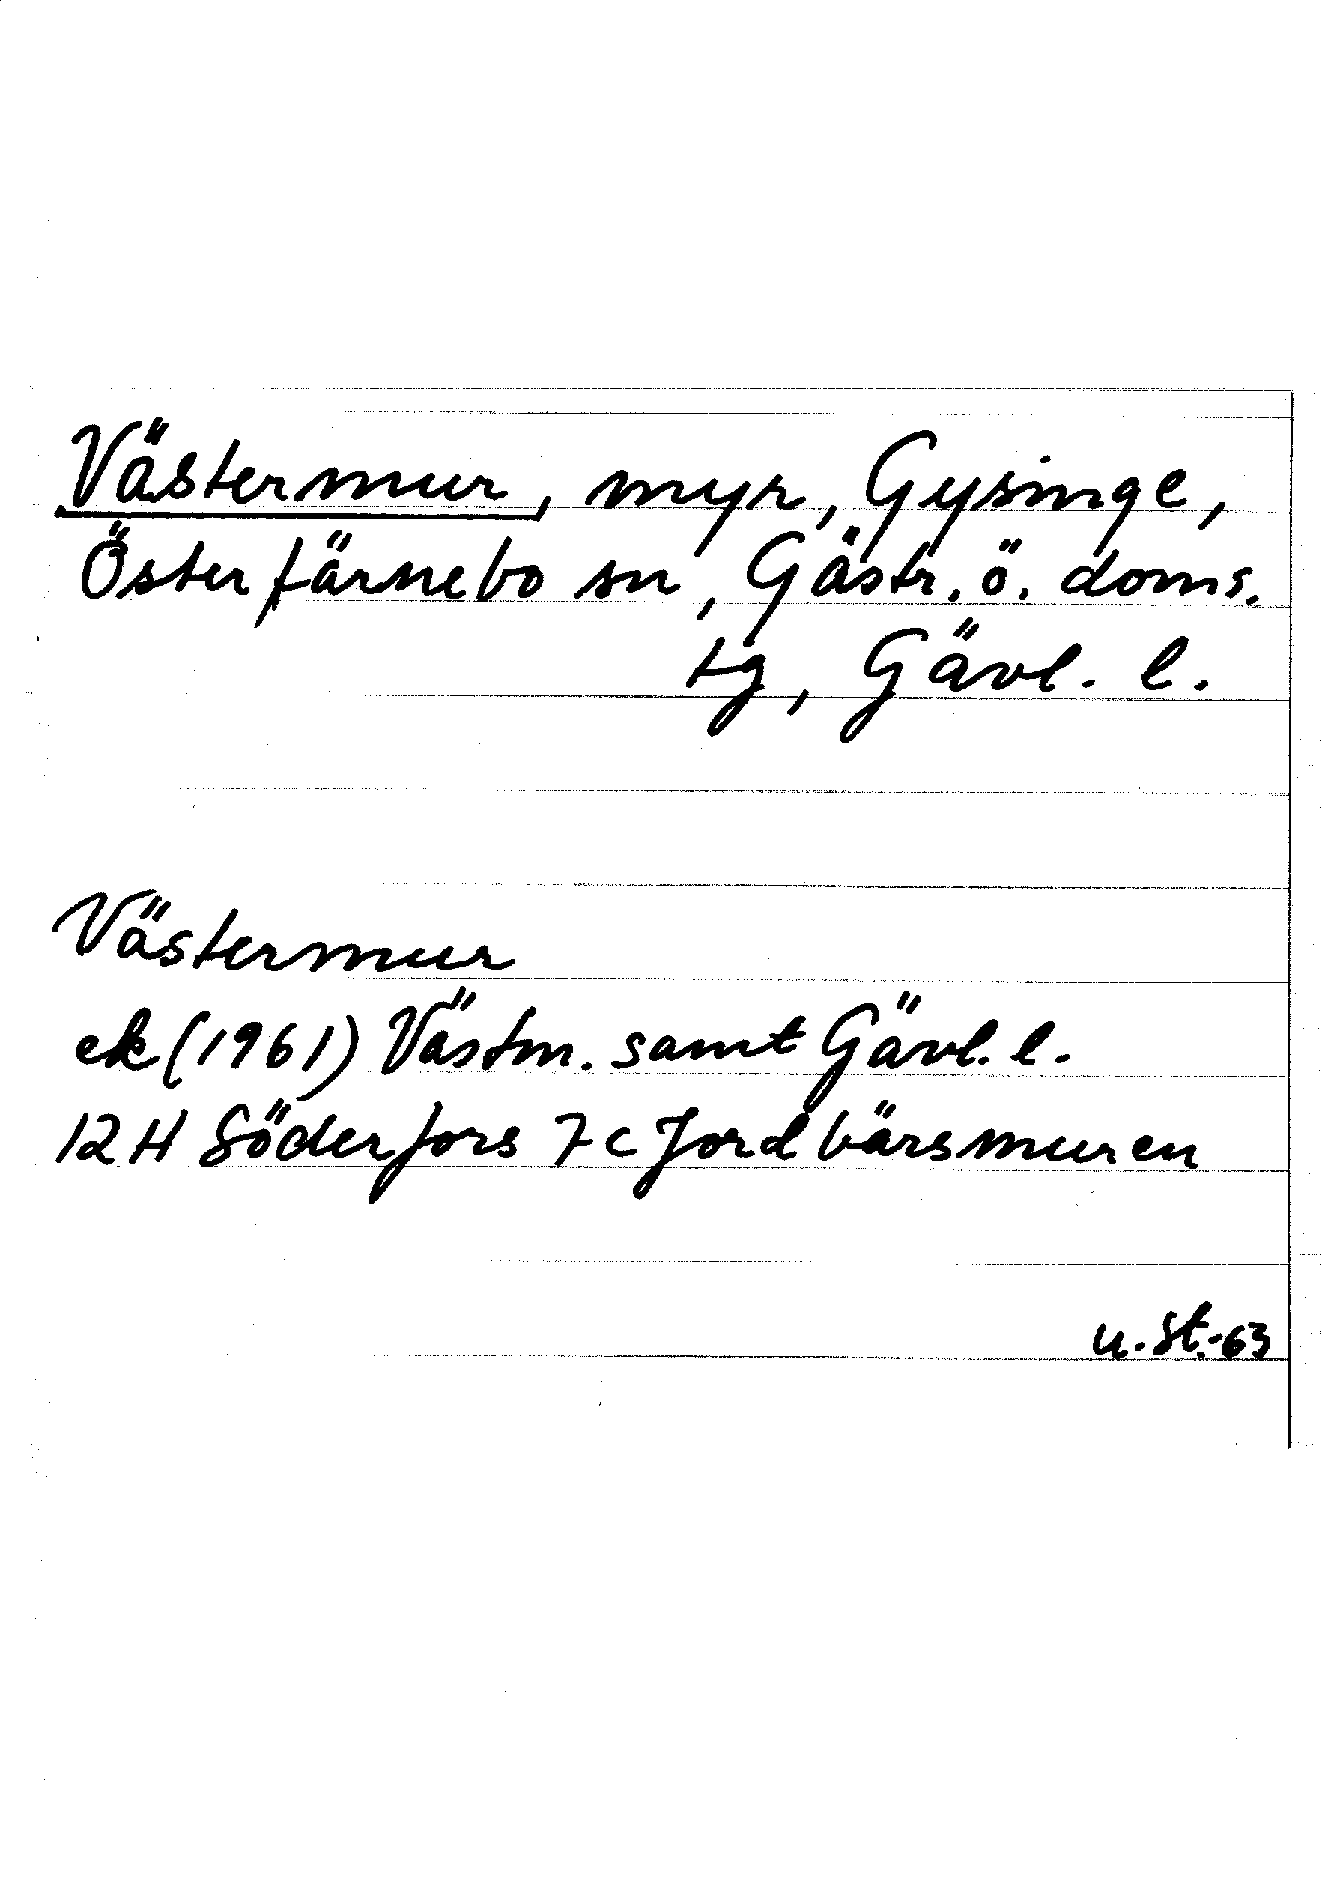 Västermur, myr, Gysinge,
Österfärnebo sn, Gästr. ö. doms.
tg, Gävl. l.
Västermur
ek (1961) Västm. samt Gävl. l.
12 H Söderfors 7 c Jordbärsmuren
u. St.-63